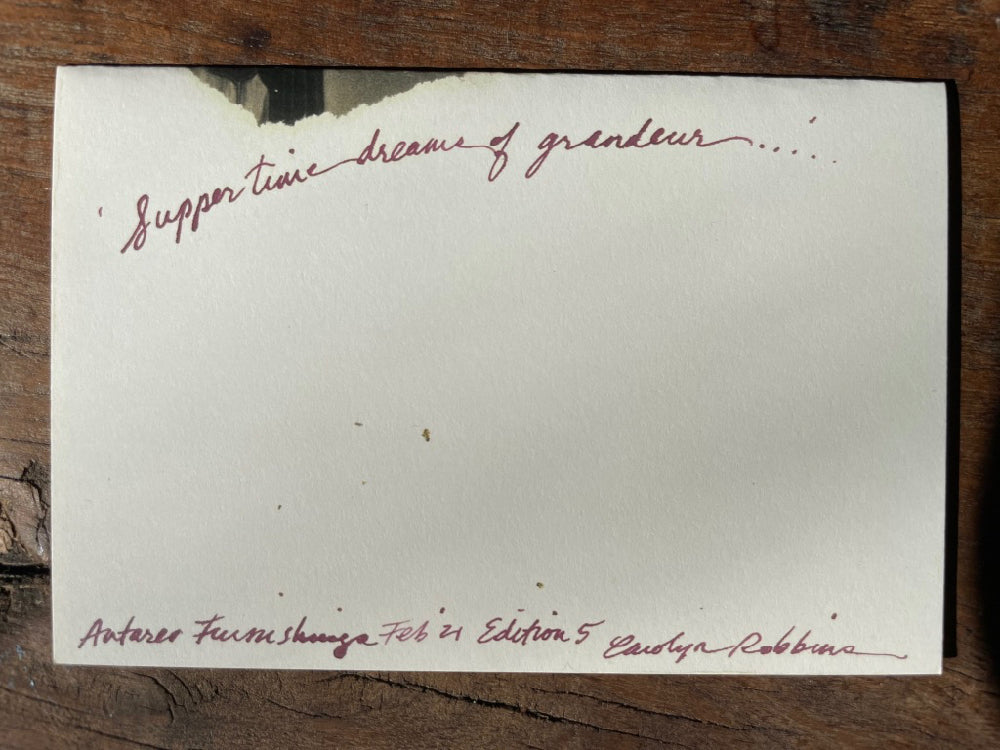 'Supper time dreams of grandeur.....'
Antares Furnishings Feb 21 Edition 5 Carolyn Robbins